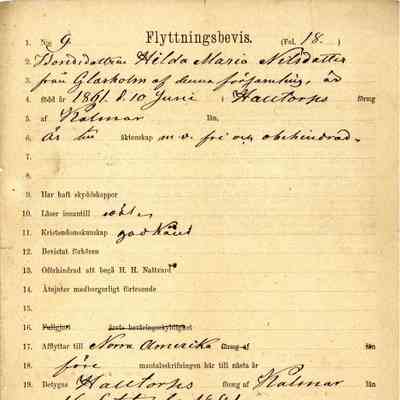 Flyttningsbevis.
1. N:o 9. (Fol. 18.)
2. Bondedottren Hilda Maria Nilsdotter
3. från Glasholm af denna församling, är
4. född år 1861 d. 10 Juni i Halltorps försg
5. af Kalmar län,
6. är till äktenskap m. v. fri och obehindrad.
7.
8.
9. Har haft skyddskoppor
10. Läser innantill
11. Kristendomskunskap godkänd
12. Bevistat förhören
13. Oförhindrad att begå H. H. Nattvard
14. Åtnjuter medborgerligt förtroende
15.
16. Fullgjort årets beväringsskyldighet
17. Afflyttar till Norra Amerika försg af län
18. före mantalsskrifningen här till nästa år
19. Betygas Halltorps försg af Kalmar län